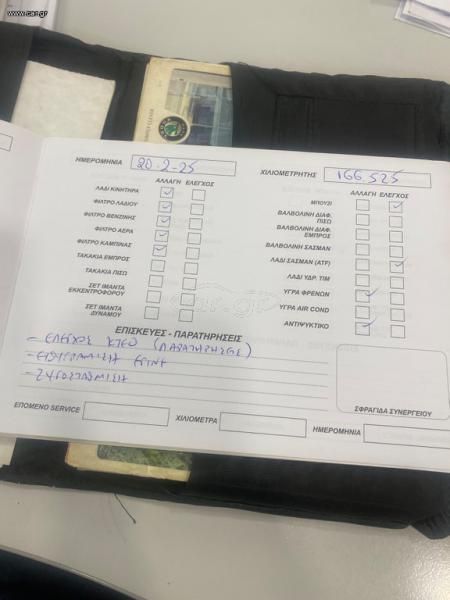 www.car.gr
SIMPLY CLEVER
ΗΜΕΡΟΜΗΝΙΑ 20-2-25
ΧΙΛΙΟΜΕΤΡΗΤΗΣ 166 525
ΑΛΛΑΓΗ ΕΛΕΓΧΟΣ
ΛΑΔΙ ΚΙΝΗΤΗΡΑ
ΦΙΛΤΡΟ ΛΑΔΙΟΥ
ΦΙΛΤΡΟ ΒΕΝΖΙΝΗΣ
ΦΙΛΤΡΟ ΑΕΡΑ
ΦΙΛΤΡΟ ΚΑΜΠΙΝΑΣ
ΤΑΚΑΚΙΑ ΕΜΠΡΟΣ
ΤΑΚΑΚΙΑ ΠΙΣΩ
ΣΕΤ ΙΜΑΝΤΑ
ΕΚΚΕΝΤΡΟΦΟΡΟΥ
ΣΕΤ ΙΜΑΝΤΑ
ΔΥΝΑΜΟΥ
ΑΛΛΑΓΗ ΕΛΕΓΧΟΣ
ΜΠΟΥΖΙ
ΒΑΛΒΟΛΙΝΗ ΔΙΑΦ.
ΠΙΣΩ
ΒΑΛΒΟΛΙΝΗ ΔΙΑΦ.
ΕΜΠΡΟΣ
ΒΑΛΒΟΛΙΝΗ ΣΑΣΜΑΝ
ΛΑΔΙ ΣΑΣΜΑΝ (ATF)
ΛΑΔΙ ΥΔΡ. ΤΙΜ
ΥΓΡΑ ΦΡΕΝΩΝ
ΥΓΡΑ AIR COND
ΑΝΤΙΨΥΚΤΙΚΟ
car.gr
ΕΠΙΣΚΕΥΕΣ - ΠΑΡΑΤΗΡΗΣΕΙΣ
- ΕΛΕΓΧΟΣ ΚΤΕΟ (ΠΑΡΑΤΗΡΗΣΕΙΣ)
- ΕΥΘΥΓΡΑΜΙΣΗ
- ΖΥΓΟΣΤΑΘΜΙΣΗ
ΣΦΡΑΓΙΔΑ ΣΥΝΕΡΓΕΙΟΥ
ΕΠΟΜΕΝΟ SERVICE
ΧΙΛΙΟΜΕΤΡΑ
ΗΜΕΡΟΜΗΝΙΑ